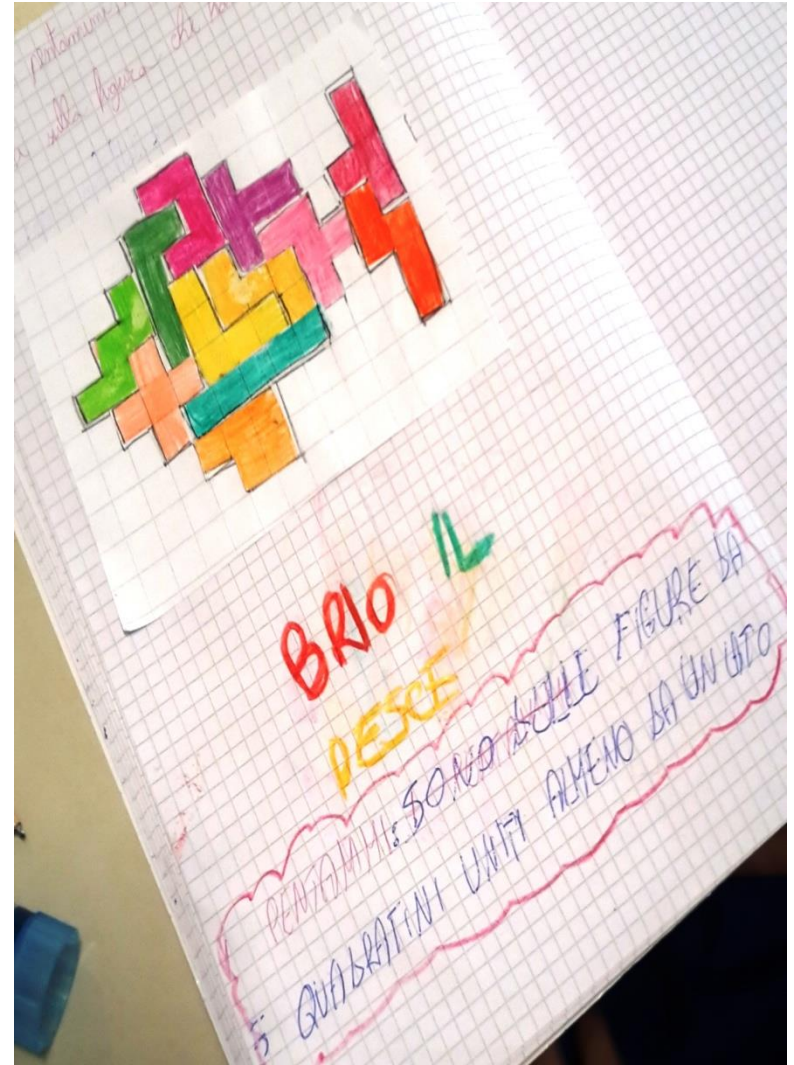 sulla figura che ha
BRIO IL
PESCE
PENTAMINI: SONO DELLE FIGURE DA
5 QUADRATINI UNITI ALMENO DA UN LATO